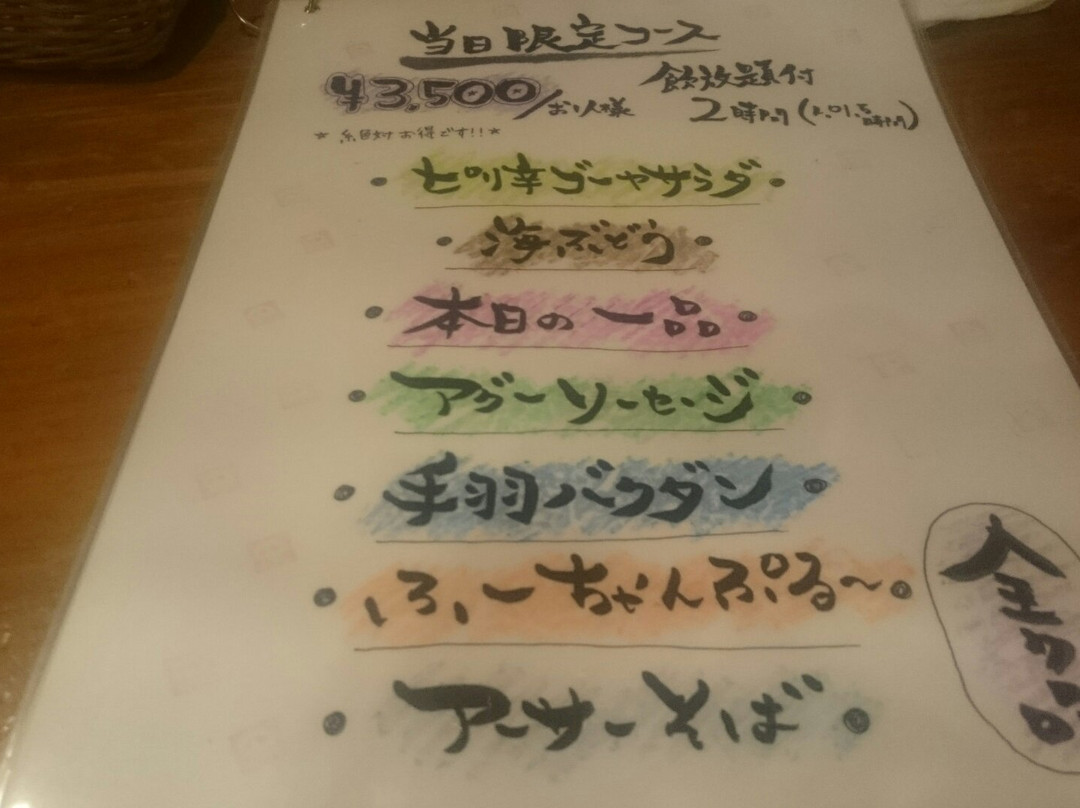 当日限定コース
¥3,500/お1人様
飲放題付
2時間(L.O1.5時間)
★絶対お得です!!★
・ピリ辛ゴーヤサラダ・
・海ぶどう・
・本日の一品・
・アグーソーセージ・
・手羽バクダン・
・ふーちゃんぷる〜・
・アーサーそば・
全7品